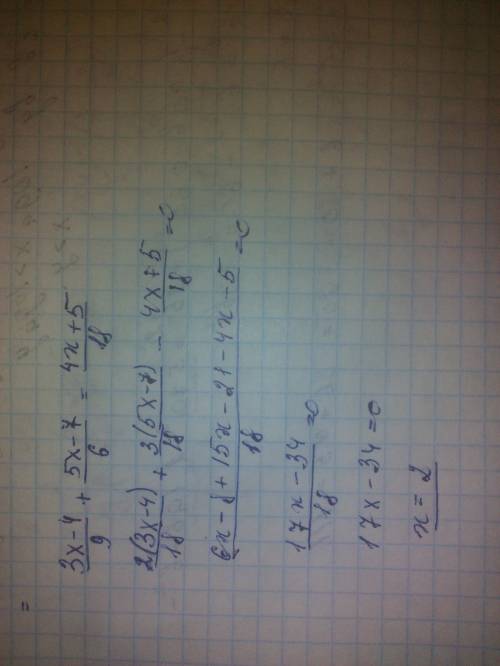 =
(3x-4)/9 + (5x-7)/6 = (4x+5)/18
2(3x-4)/18 + 3(5x-7)/18 - (4x+5)/18 =0
(6x-8+15x-21-4x-5)/18 =0
(17x-34)/18 =0
17x-34=0
x=2